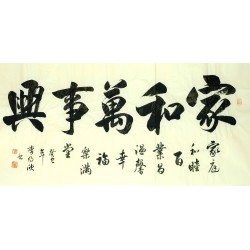 家和萬事興
家庭
和睦
百
業昌
溫馨
幸
福
樂滿
堂
癸巳
年